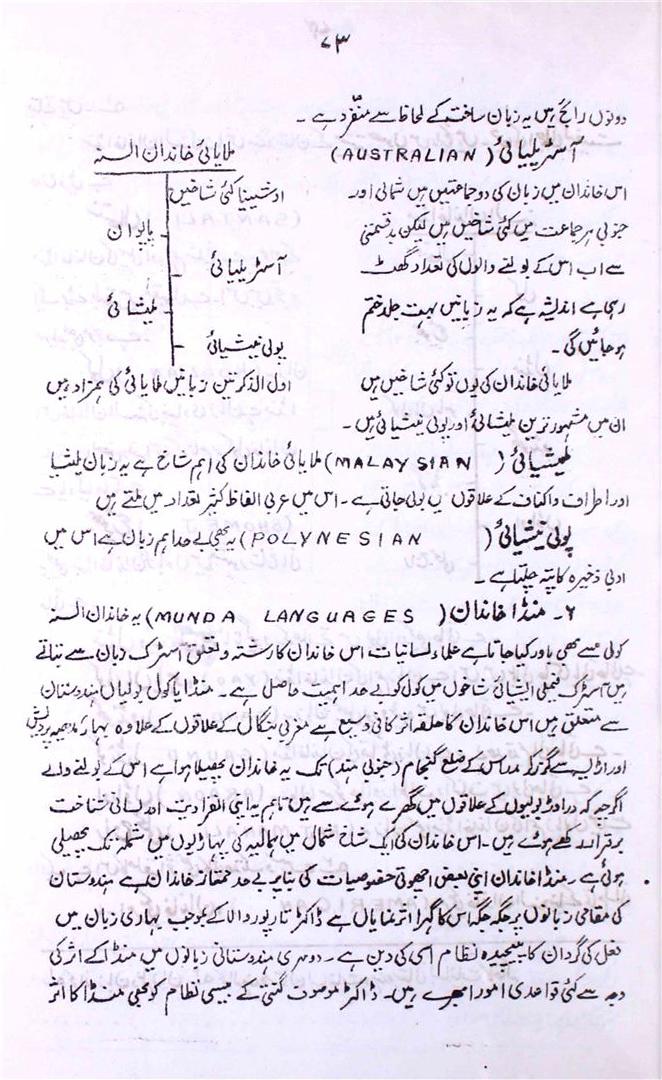 ۷۳
دونوں رائج ہیں یہ زبان ساخت کے لحاظ سے منفرد ہے ۔
آسٹریلیائی (AUSTRALIAN)
ملایائی خاندان السنہ
اس خاندان میں زبان کی دو جماعتیں ہیں شمالی اور
جنوبی ہر جماعت میں کئی شاخیں ہیں لیکن بدقسمتی
سے اب اس کے بولنے والوں کی تعداد گھٹ
رہی ہے اندیشہ ہے کہ یہ زبانیں بہت جلد ختم
ہو جائیں گی ۔
کئی شاخیں
پاپوان
آسٹریلیائی
ملیشیائی
پولی نیشیائی
ملایائی خاندان کی یوں تو کئی شاخیں ہیں
ان میں مشہور ترین ملیشیائی اور پولی نیشیائی ہیں ۔
اول الذکر تین زبانیں ملایائی کی ہمزاد ہیں
ملیشیائی (MALAYSIAN) ملایائی خاندان کی اہم شاخ ہے یہ زبان ملیشیا
اور اطراف و اکناف کے علاقوں میں بولی جاتی ہے ۔ اس میں عربی الفاظ کثیر تعداد میں ملتے ہیں
پولی نیشیائی (POLYNESIAN) یہ بھی بے حد اہم زبان ہے اس میں
ادبی ذخیرہ کا پتہ چلتا ہے ۔
۶۔ منڈا خاندان (MUNDA LANGUAGES) یہ خاندان السنہ
کولی سے بھی باور کیا جاتا ہے علماء لسانیات اس خاندان کا رشتہ و تعلق آسٹرک زبان سے بتاتے
ہیں آسٹرک قبیلی ایشیائی شاخوں میں کول کو بے حد اہمیت حاصل ہے ۔ منڈا یا کول بولیاں ہندوستان
سے متعلق ہیں اس خاندان کا حلقہ اثر کافی وسیع ہے مغربی بنگال کے علاقوں کے علاوہ بہار، مدھیہ پردیش
اور اڑیسہ سے گزر کر مدراس کے ضلع گنجام (جنوبی ہند) تک یہ خاندان پھیلا ہوا ہے اس کے بولنے والے
اگرچہ کہ دراوڑ بولیوں کے علاقوں میں گھرے ہوئے سے ہیں تاہم یہ اپنی انفرادیت اور لسانی شناخت
برقرار رکھے ہوئے ہیں ۔ اس خاندان کی ایک شاخ شمال میں ہمالیہ کی پہاڑیوں میں شملہ تک پھیلی
ہوئی ہے ۔ منڈا خاندان اپنی بعض اچھوتی خصوصیات کی بناء پر بے حد ممتاز خاندان ہے ہندوستان
کی مقامی زبانوں پر جگہ جگہ اس کا گہرا اثر نمایاں ہے ڈاکٹر تارپور والا کے بموجب بہاری زبان میں
فعل کی گردان کا پیچیدہ نظام اسی کی دین ہے ۔ دوسری ہندوستانی زبانوں میں منڈا کے اثر کی
وجہ سے کئی قواعدی امور ابھرے ہیں ۔ ڈاکٹر موصوف گنتی کے بیسی نظام کو بھی منڈا کا اثر